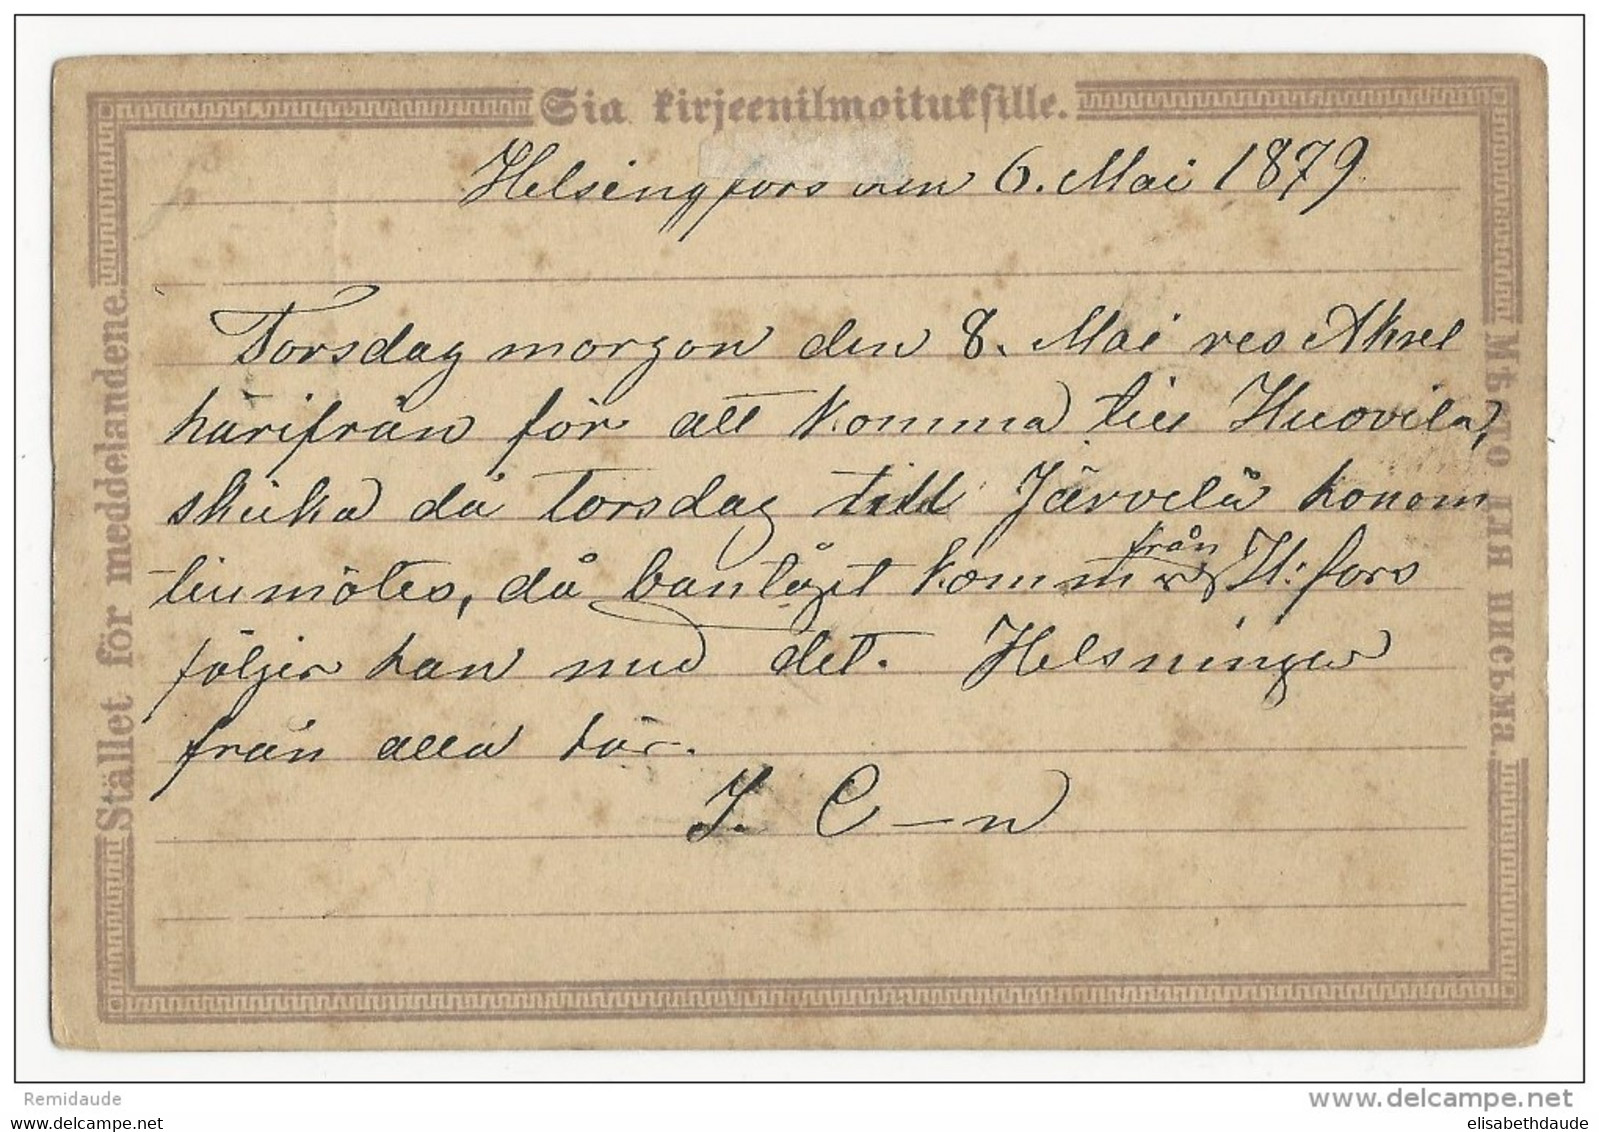 Sia kirjeenilmoituksille.
Helsingfors den 6. Mai 1879.
Torsdag morgon den 8. Mai res Aksel
härifrån för att komma till Huovila,
skicka då torsdag till Järvelä honom
tillmötes, då bantåget kommer från H:fors
följer han med det. Helsningar
från alla här.
J. C—n
Stället för meddelandene.
Мѣсто для письма.
Remidaude
www.delcampe.net
www.delcampe.com
elisabethdaude